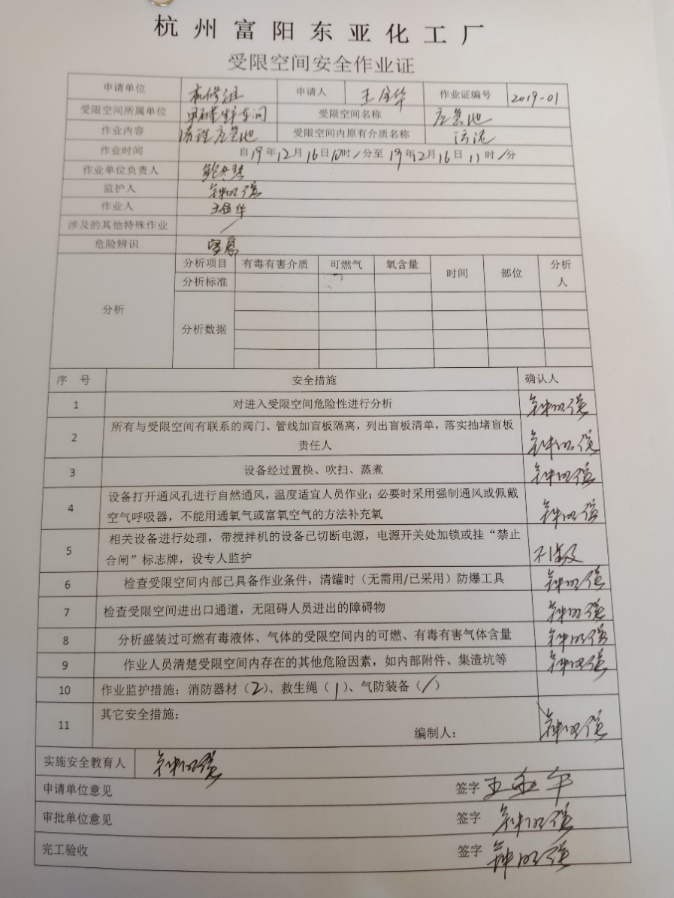 杭州富阳东亚化工厂
受限空间安全作业证
申请单位 机修组 申请人 王金华 作业证编号 2019-01
受限空间所属单位 车间 受限空间名称 应急池
作业内容 清理应急池 受限空间内原有介质名称 污泥
作业时间 自19年12月16日10时/分至19年12月16日11时/分
作业单位负责人
监护人 钟明强
作业人 王金华
涉及的其他特殊作业 /
危险辨识 窒息
分析 分析项目 有毒有害介质 可燃气 氧含量 时间 部位 分析人
分析标准
分析数据
序 号 安全措施 确认人
1 对进入受限空间危险性进行分析 钟明强
2 所有与受限空间有联系的阀门、管线加盲板隔离，列出盲板清单，落实抽堵盲板
责任人 钟明强
3 设备经过置换、吹扫、蒸煮 钟明强
4 设备打开通风孔进行自然通风，温度适宜人员作业；必要时采用强制通风或佩戴
空气呼吸器，不能用通氧气或富氧空气的方法补充氧 钟明强
5 相关设备进行处理，带搅拌机的设备已切断电源，电源开关处加锁或挂“禁止
合闸”标志牌，设专人监护 不涉及
6 检查受限空间内部已具备作业条件，清罐时（无需用/已采用）防爆工具 钟明强
7 检查受限空间进出口通道，无阻碍人员进出的障碍物 钟明强
8 分析盛装过可燃有毒液体、气体的受限空间内的可燃、有毒有害气体含量 钟明强
9 作业人员清楚受限空间内存在的其他危险因素，如内部附件、集渣坑等 钟明强
10 作业监护措施：消防器材（2）、救生绳（1）、气防装备（/）
11 其它安全措施：
编制人： 钟明强
实施安全教育人 钟明强
申请单位意见 签字 王金华
审批单位意见 签字 钟明强
完工验收 签字 钟明强